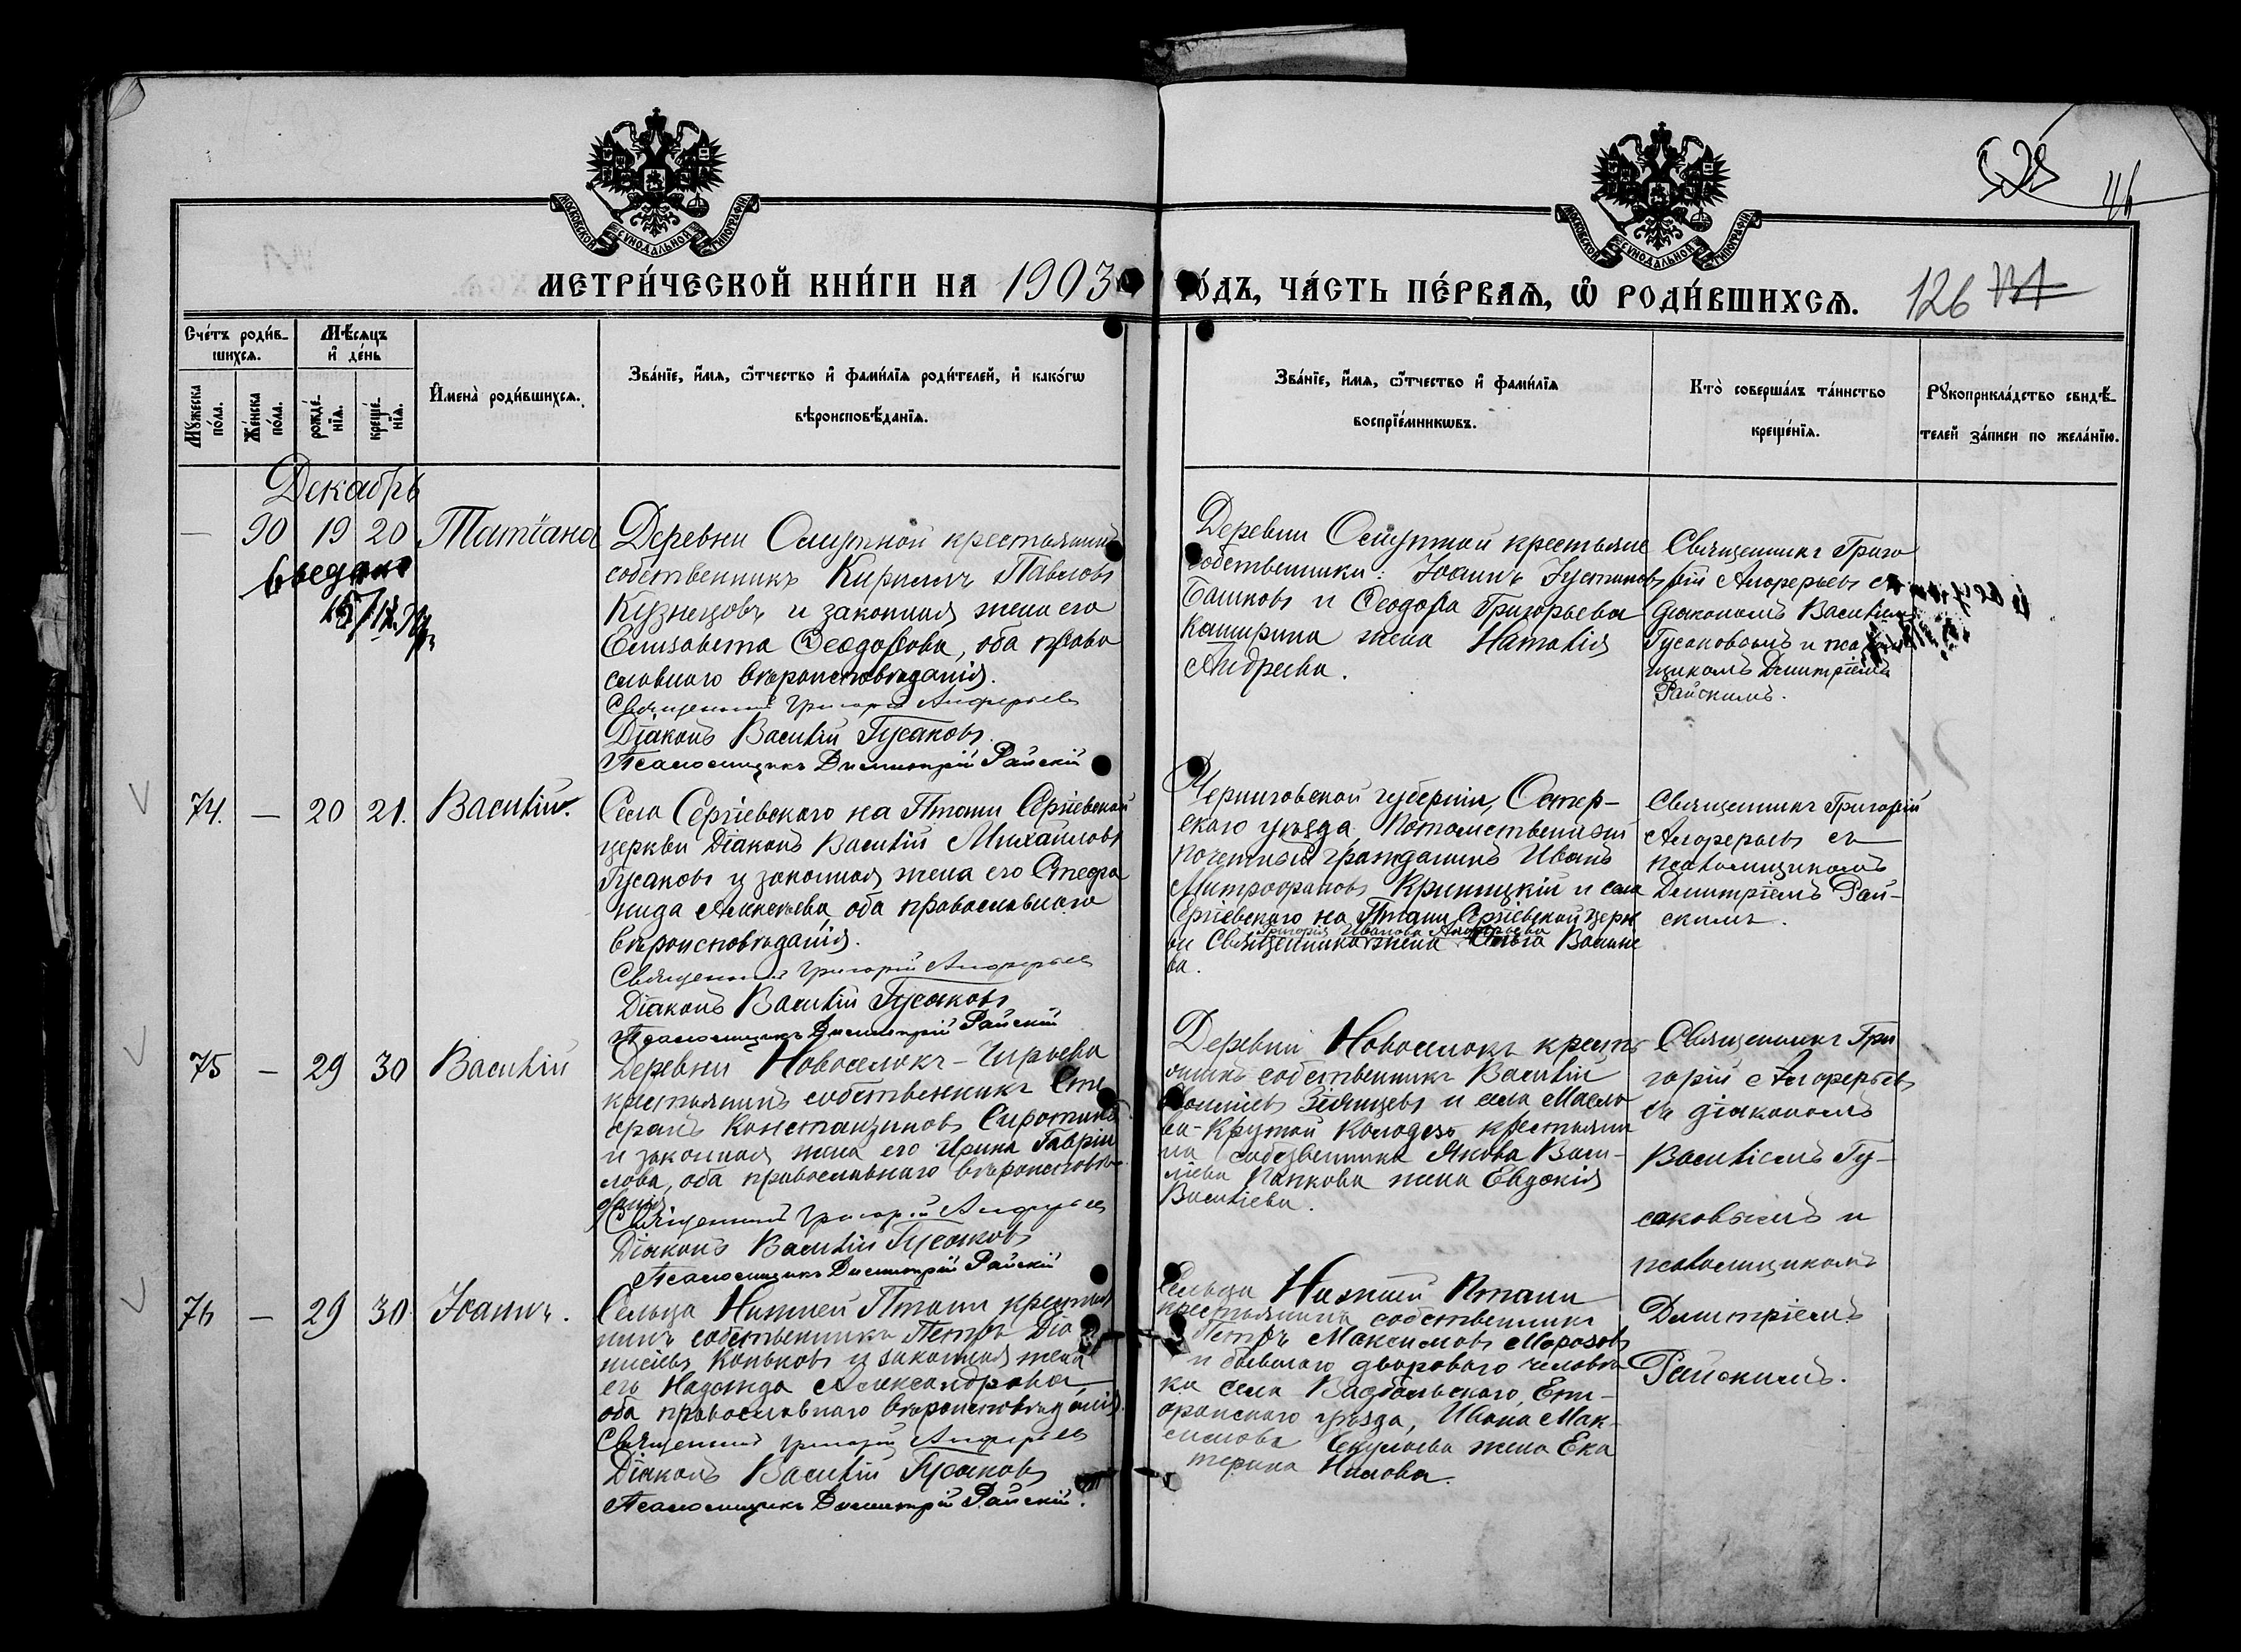 МОСКОВСКОЙ СѴНОДАЛЬНОЙ ТИПОГРАФІИ
МОСКОВСКОЙ СѴНОДАЛЬНОЙ ТИПОГРАФІИ
126
МЕТРИ́ЧЕСКОЙ КНИ́ГИ НА 1903 го́дъ, ЧА́СТЬ ПЕ́РВАѦ, Ѡ҆ РОДИ́ВШИХСѦ.
Сче́тъ роди́в-
шихсѧ.
Мꙋ́жеска по́ла.
Же́нска по́ла.
Мѣ́сѧцъ
и҆ де́нь
рожде́-
нїѧ.
креще́-
нїѧ.
И҆мена̀ роди́вшихсѧ.
Зва́нїе, и҆́мѧ, ѻ҆́тчество и҆ фами́лїѧ роди́телей, и҆ како́гѡ
вѣроисповѣ́данїѧ.
Зва́нїе, и҆́мѧ, ѻ҆́тчество и҆ фами́лїѧ
воспрїе́мникѡвъ.
Кто̀ соверша́лъ та́инство
креще́нїѧ.
Рꙋкоприкла́дство свидѣ́-
телей за́писи по жела́нїю.
Декабрь
— 90 19 20 Татіана
Деревни Смутной крестьянинъ
собственникъ Кириллъ Павловъ
Кузнецовъ и законная жена его
Елисавета Ѳеодорова, оба право
славнаго вѣроисповѣданія.
Священникъ Григорій Алферьевъ
Діаконъ Василій Гусаковъ.
Псаломщикъ Димитрій Райскій
Деревни Смутной крестьяне
собственники: Іоаннъ Іустиновъ
Башковъ и Ѳеодора Григорьева
Каширина жена Наталія
Андреева.
Священникъ Григо
рій Алферьевъ съ
діакономъ Василіемъ
Гусаковымъ и псалом
щикомъ Димитріемъ
Райскимъ.
74. — 20 21. Василій.
Села Сергіевскаго на Птани Сергіевской
церкви Діаконъ Василій Михайловъ
Гусаковъ и законная жена его Стефа
нида Алексѣева, оба православнаго
вѣроисповѣданія.
Священникъ Григорій Алферьевъ
Діаконъ Василій Гусаковъ
Псаломщикъ Димитрій Райскій
Черниговской губерніи, Остер-
скаго уѣзда Потомственный
почетный гражданинъ Иванъ
Митрофановъ Криницкій и села
Сергіевскаго на Птани Сергіевской церк
Григорія Иванова Алферьева
ви Священника жена Ольга Василье
ва.
Священникъ Григорій
Алферьевъ съ
псаломщикомъ
Димитріемъ Рай-
скимъ.
75 — 29 30 Василій
Деревни Новоселокъ-Гирьева
крестьянинъ собственникъ Сте
фанъ Константиновъ Сиротинъ
и законная жена его Ирина Гаврии
лова, оба православнаго вѣроисповѣ-
данія
Священникъ Григорій Алферьевъ
Діаконъ Василій Гусаковъ
Псаломщикъ Димитрій Райскій
Деревни Новоселокъ кресть
янинъ собственникъ Василій
и села Масло
ва-Крутой Колодезь крестьяни
на собственника Якова Васи-
лиева Панкова жена Евдокія
Василіева.
Священникъ Гри
горій Алферьевъ
съ діакономъ
Василіемъ Гу-
саковымъ и
псаломщикомъ
Димитріемъ
Райскимъ.
76 — 29 30 Іоаннъ.
Сельца Нижней Птани крестья
нинъ собственникъ Петръ Діо
нисіевъ Коньковъ и законная жена
его Надежда Александрова,
оба православнаго вѣроисповѣданія.
Священникъ Григорій Алферьевъ
Діаконъ Василій Гусаковъ
Псаломщикъ Димитрій Райскій.
Сельца Нижней Птани
крестьянинъ собственникъ
Петръ Максимовъ Морозовъ
и бывшаго двороваго человѣ
ка села Вадбольскаго, Епи-
фанскаго уѣзда, Ивана Мак-
симова жена Ека
терина Нилова.